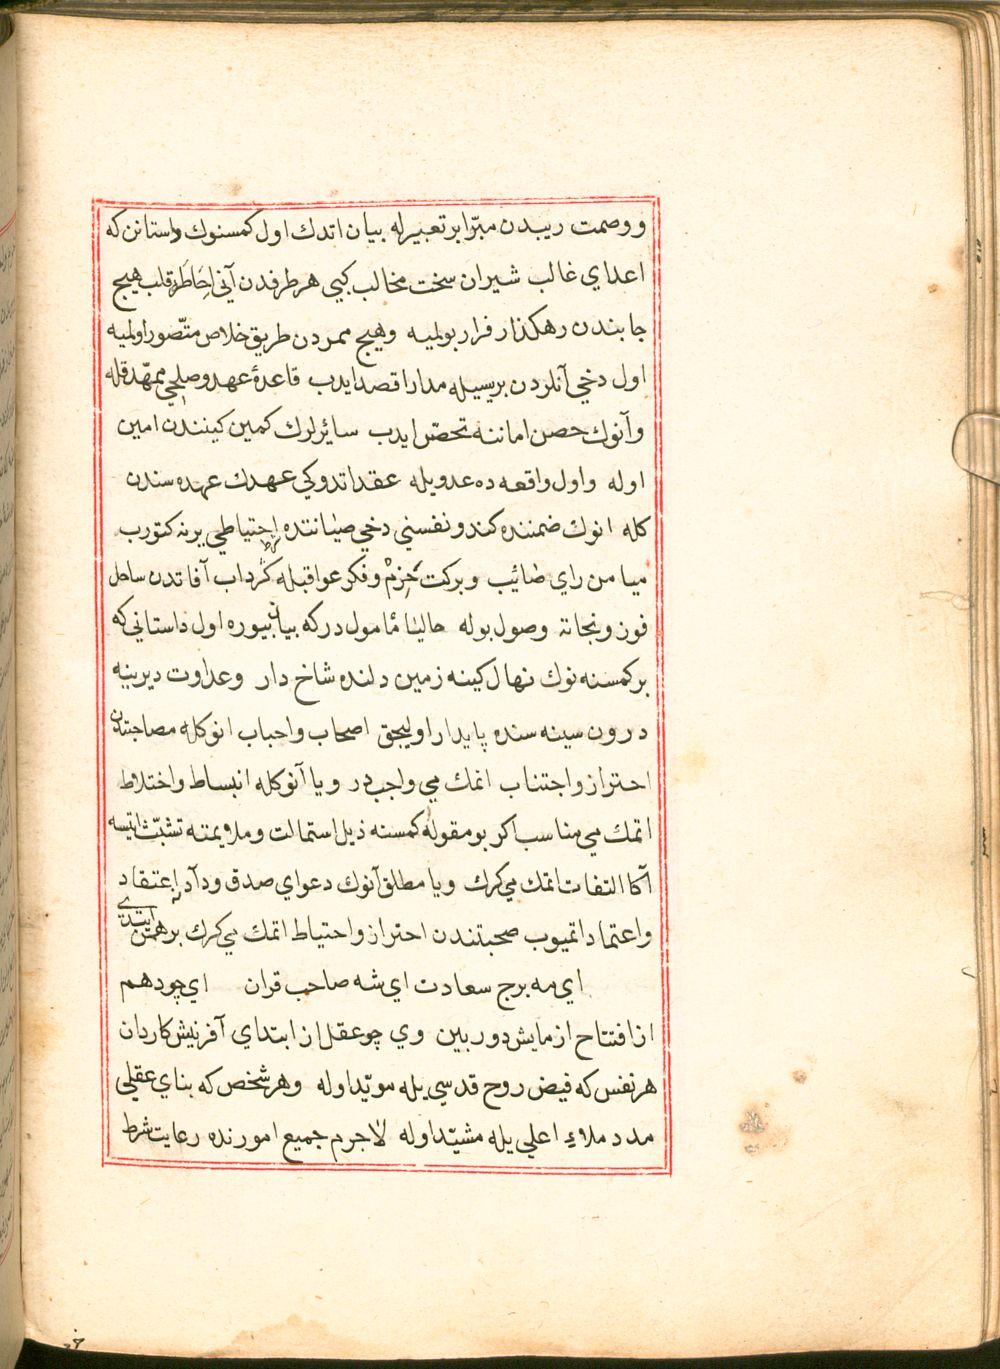 ووصمت ریبدن مبرّا بر تعبیرله بیان اتدك اول كمسنوك داستانن كه
اعدای غالب شیران سخت مخالب كبی هر طرفدن آنی احاطه قلب هیج
جابندن رهكذار فرار بولمیه وهیج ممردن طریق خلاص متّصور اولمیه
اول دخی آنلردن بریسیله مدارا قصد ایدب قاعدهٔ عهد وصلحی ممهّد قله
وآنوك حصن اماننه تحصّن ایدب سائرلرك كمین كینندن امین
اوله واول واقعه ده عدویله عقد اتدوكی عهدك عهده سندن
كله انوك ضمننده كندو نفسنی دخی صیانتده احتیاطی یرنه كتورب
میامن رای صائب وبركت حزم وفكر عواقبله گرداب آفاتدن ساحل
فوز ونجاته وصول بوله حالیا مأمول دركه بیان بیوره اول داستانی كه
بر كمسنه نوك نهال كینه زمین دلنده شاخ دار وعداوت دیرینه
درون سینه سنده پایدار اولیجق اصحاب واحباب انوكله مصاحبتدن
احتراز واجتناب اتمك می واجبدر ویا آنوكله انبساط واختلاط
اتمك می مناسب اكر بو مقوله كمسنه ذیل استمالت وملایمته تشبّث ایتسه
آكا التفات اتمك می كرك ویا مطلق آنوك دعوای صدق ودادنه اعتقاد
واعتماد اتمیوب صحبتندن احتراز واحتیاط اتمك می كرك برهمن ایتدی
ای مه برج سعادت ای شه صاحب قران ای چو دهم
از افتتاح ازمایش دور بین وی چو عقل از ابتدای آفرنیش كاردان
هر نفس كه فیض روح قدسی یله مویّد اوله وهر شخص كه بنای عقلی
مدد ملاء اعلی یله مشیّد اوله لاجرم جمیع امورنده رعایت شرط